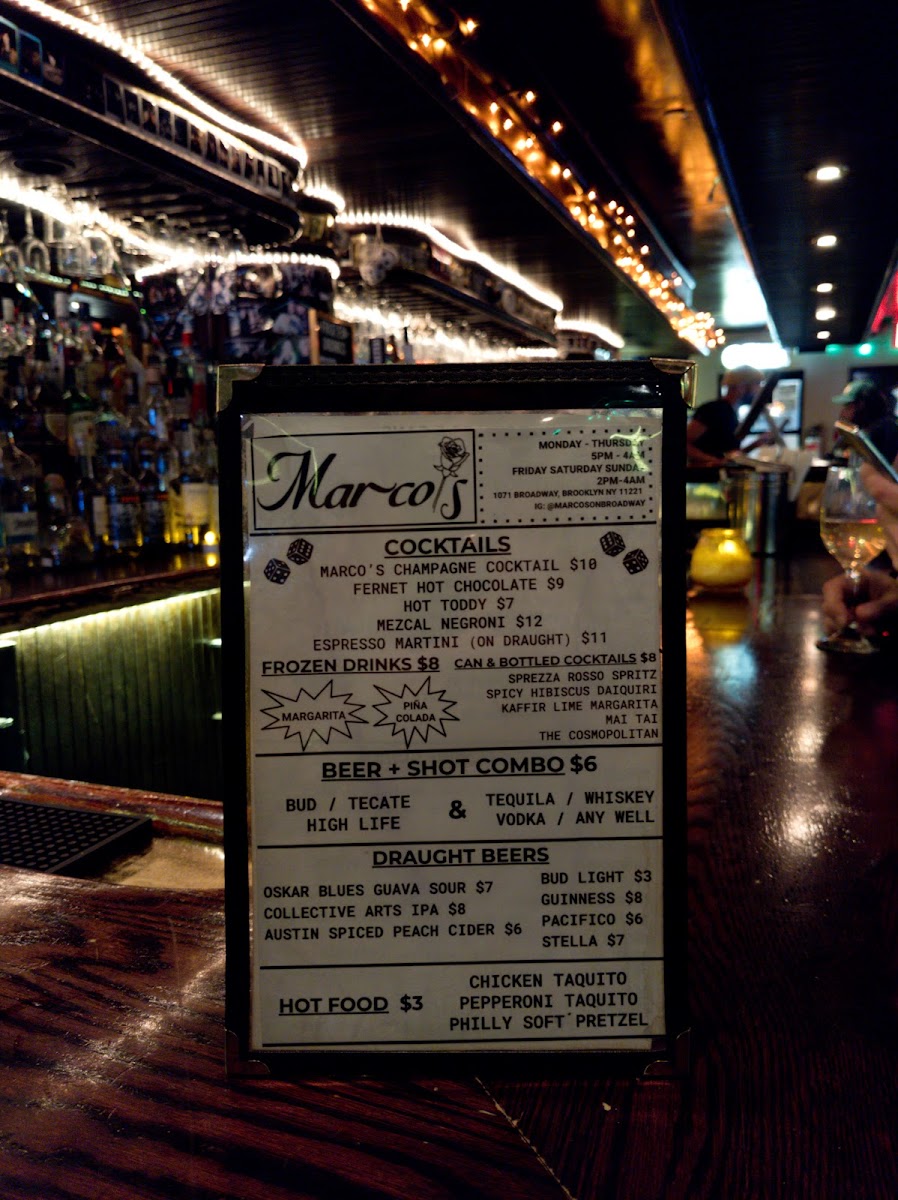 Marco's
MONDAY - THURSDAY
5PM - 4AM
FRIDAY SATURDAY SUNDAY
2PM-4AM
1071 BROADWAY, BROOKLYN NY 11221
IG: @MARCOSONBROADWAY
COCKTAILS
MARCO'S CHAMPAGNE COCKTAIL $10
FERNET HOT CHOCOLATE $9
HOT TODDY $7
MEZCAL NEGRONI $12
ESPRESSO MARTINI (ON DRAUGHT) $11
FROZEN DRINKS $8
MARGARITA
PIÑA
COLADA
CAN & BOTTLED COCKTAILS $8
SPREZZA ROSSO SPRITZ
SPICY HIBISCUS DAIQUIRI
KAFFIR LIME MARGARITA
MAI TAI
THE COSMOPOLITAN
BEER + SHOT COMBO $6
BUD / TECATE
HIGH LIFE
&
TEQUILA / WHISKEY
VODKA / ANY WELL
DRAUGHT BEERS
OSKAR BLUES GUAVA SOUR $7
COLLECTIVE ARTS IPA $8
AUSTIN SPICED PEACH CIDER $6
BUD LIGHT $3
GUINNESS $8
PACIFICO $6
STELLA $7
HOT FOOD $3
CHICKEN TAQUITO
PEPPERONI TAQUITO
PHILLY SOFT PRETZEL